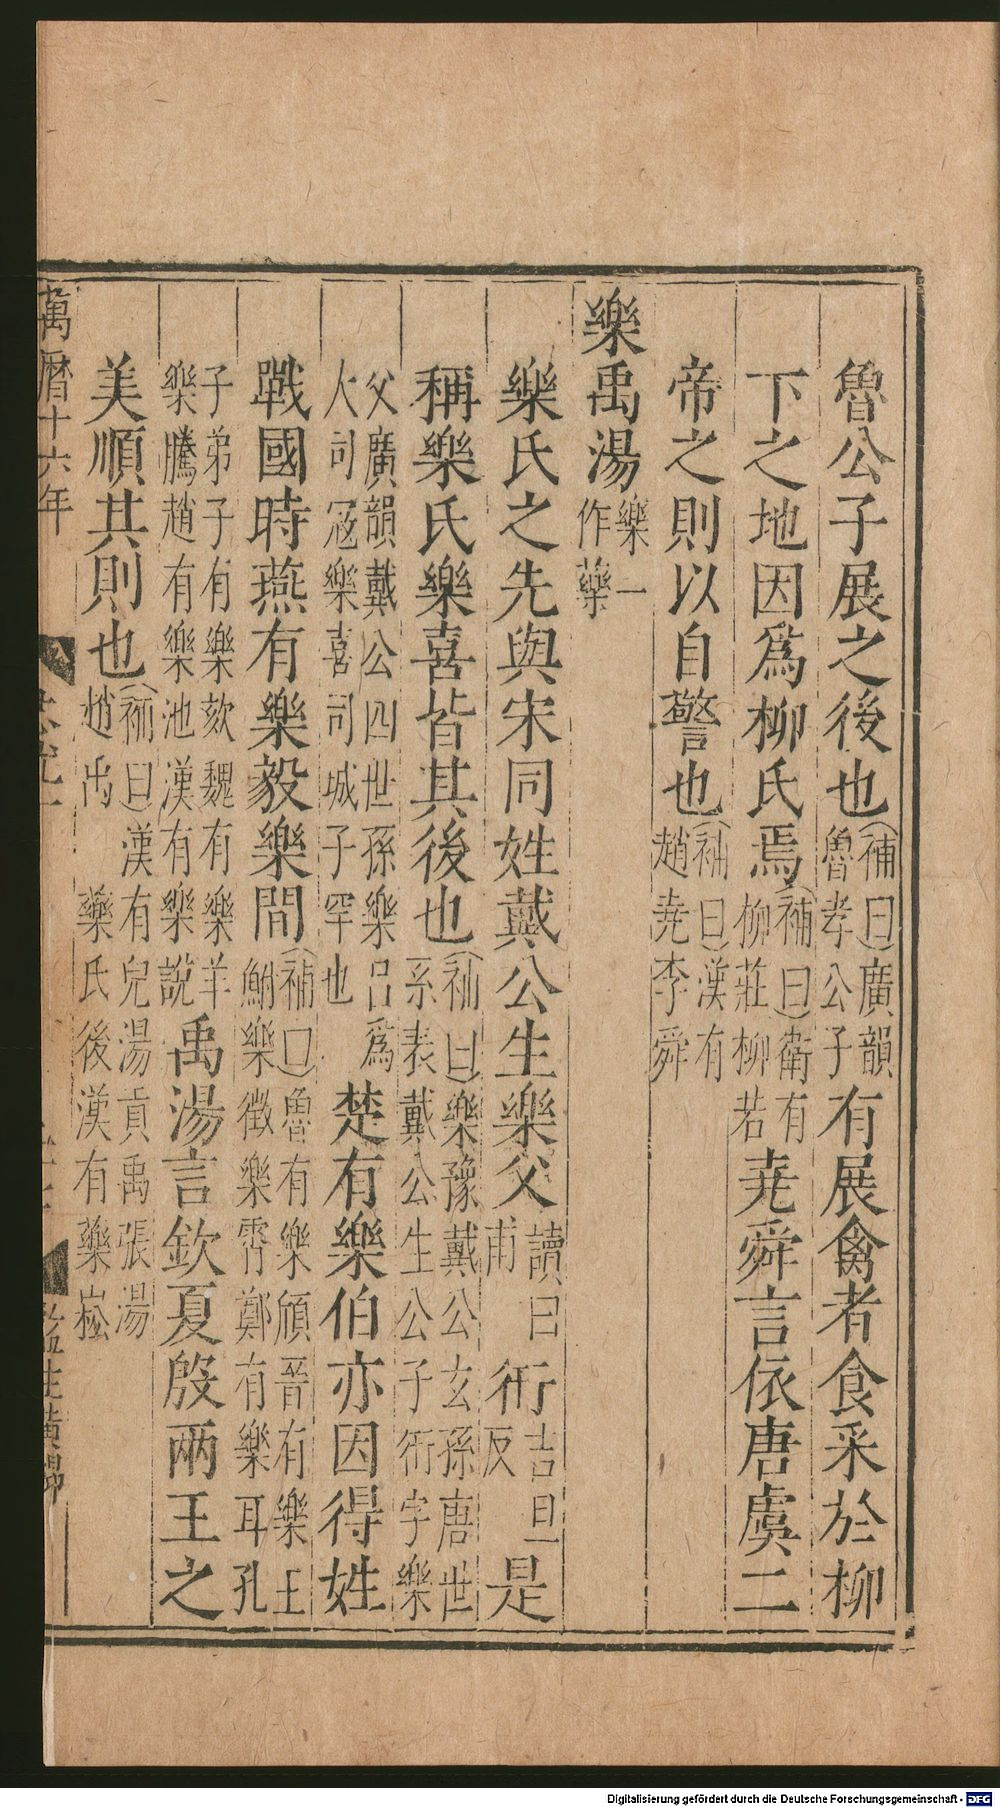 魯公子展之後也(補曰)廣韻魯孝公子有展禽者食采於柳
下之地因爲柳氏焉(補曰)衛有柳莊柳若堯舜言依唐虞二
帝之則以自警也(補曰)漢有趙堯李舜
樂禹湯樂一作藥
樂氏之先與宋同姓戴公生樂父讀曰甫衎吉旦反是
稱樂氏樂喜皆其後也(補曰)樂豫戴公玄孫唐世系表戴公生公子衎字樂
父廣韻戴公四世孫樂呂爲大司冦樂喜司城子罕也楚有樂伯亦因得姓
戰國時燕有樂毅樂間(補曰)魯有樂頎晉有樂王鮒樂徵樂霄鄭有樂耳孔
子弟子有樂欬魏有樂羊樂騰趙有樂池漢有樂說禹湯言欽夏殷兩王之
美順其則也(補曰)漢有兒湯貢禹張湯趙禹藥氏後漢有藥崧
萬曆十六年
Digitalisierung gefördert durch die Deutsche Forschungsgemeinschaft - DFG